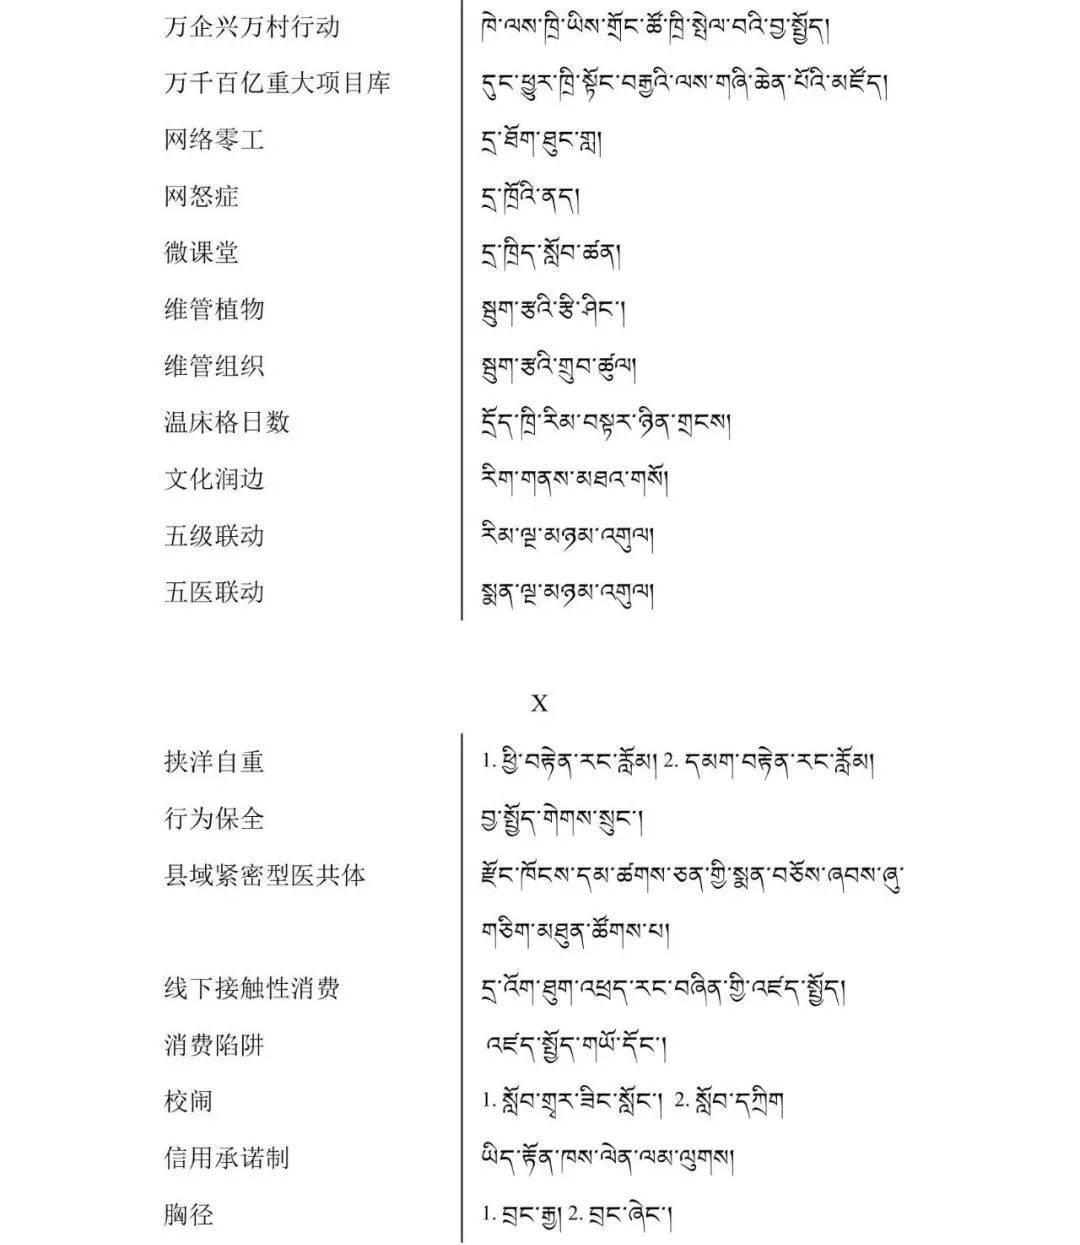 万企兴万村行动 ཁེ་ལས་ཁྲི་ཡིས་གྲོང་ཚོ་ཁྲི་སྤེལ་བའི་བྱ་སྤྱོད།
万千百亿重大项目库 དུང་ཕྱུར་ཁྲི་སྟོང་བརྒྱའི་ལས་གཞི་ཆེན་པོའི་མཛོད།
网络零工 དྲ་ཐོག་ཐུང་གླ།
网怒症 དྲ་ཁྲོའི་ནད།
微课堂 དྲ་ཁྲིད་སློབ་ཚན།
维管植物 སྦུག་རྩའི་རྩི་ཤིང་།
维管组织 སྦུག་རྩའི་གྲུབ་ཚུལ།
温床格日数 དྲོད་ཁྲི་རིམ་བསྟར་ཉིན་གྲངས།
文化润边 རིག་གནས་མཐའ་གསོ།
五级联动 རིམ་ལྔ་མཉམ་འགུལ།
五医联动 སྨན་ལྔ་མཉམ་འགུལ།
X
挟洋自重 1. ཕྱི་བརྟེན་རང་རློམ། 2. དམག་བརྟེན་རང་རློམ།
行为保全 བྱ་སྤྱོད་གེགས་སྲུང་།
县域紧密型医共体 རྫོང་ཁོངས་དམ་ཚགས་ཅན་གྱི་སྨན་བཅོས་ཞབས་ཞུ་
གཅིག་མཐུན་ཚོགས་པ།
线下接触性消费 དྲ་འོག་ཐུག་འཕྲད་རང་བཞིན་གྱི་འཛད་སྤྱོད།
消费陷阱 འཛད་སྤྱོད་གཡོ་དོང་།
校闹 1. སློབ་གྲྭར་ཟིང་སློང་། 2. སློབ་དཀྲིག
信用承诺制 ཡིད་རྟོན་ཁས་ལེན་ལམ་ལུགས།
胸径 1. བྲང་རྒྱ། 2. བྲང་ཞེང་།